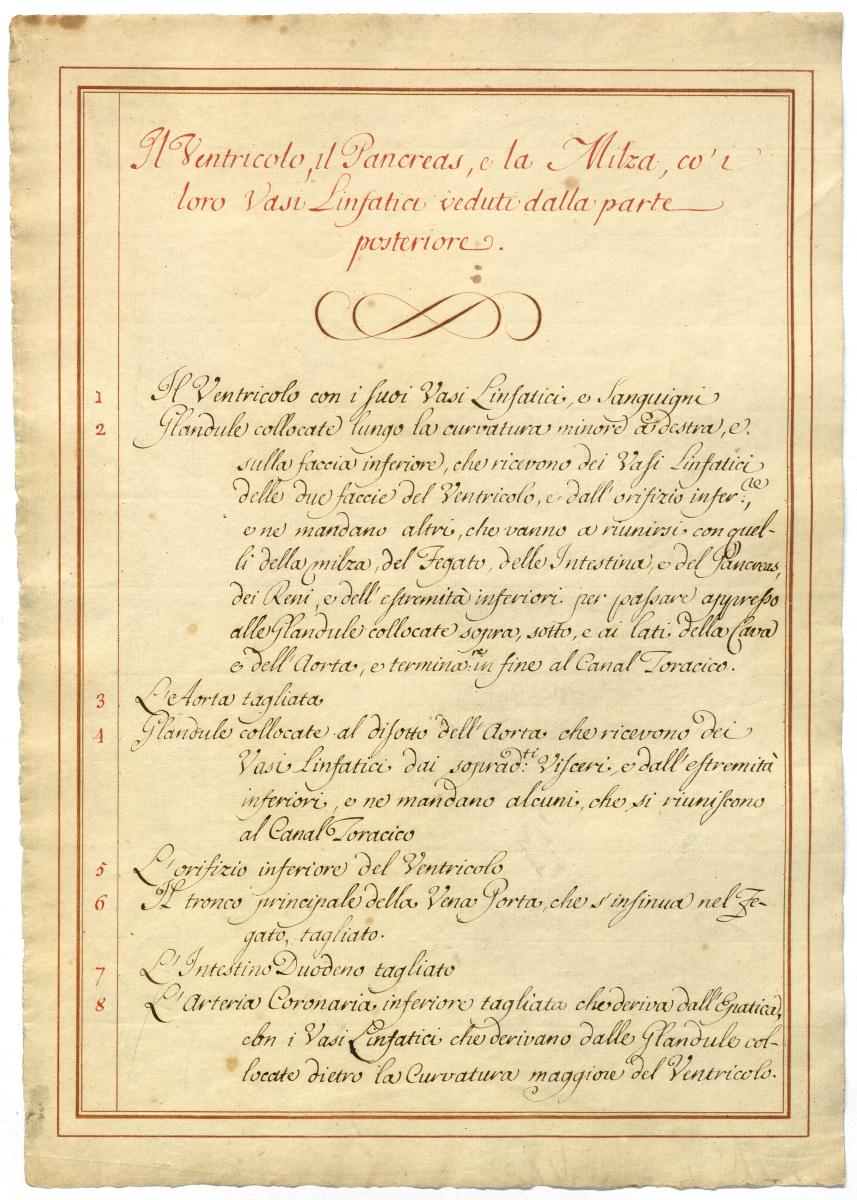 Il Ventricolo, il Pancreas, e la Milza, co' i
loro Vasi Linfatici veduti dalla parte
posteriore.
1 Il Ventricolo con i suoi Vasi Linfatici, e Sanguigni
2 Glandule collocate lungo la curvatura minore a destra, e
sulla faccia inferiore, che ricevono dei Vasi Linfatici
delle due faccie del Ventricolo, e dall'orifizio infer:re,
e ne mandano altri, che vanno a riunirsi con quel-
li della milza, del Fegato, delle Intestina, e del Pancreas,
dei Reni, e dell'estremità inferiori per passare appresso
alle Glandule collocate sopra, sotto, e ai lati della Cava
e dell'Aorta, e termina:re in fine al Canal Toracico.
3 L'Aorta tagliata
4 Glandule collocate al disotto dell'Aorta che ricevono dei
Vasi Linfatici dai soprad:ti Visceri, e dall'estremità
inferiori, e ne mandano alcuni, che si riuniscono
al Canal Toracico
5 L'orifizio inferiore del Ventricolo
6 Il tronco principale della Vena Porta, che s'insinua nel Fe-
gato, tagliato.
7 L'Intestino Duodeno tagliato
8 L'Arteria Coronaria inferiore tagliata che deriva dall'Epatica,
con i Vasi Linfatici che derivano dalle Glandule col-
locate dietro la Curvatura maggiore del Ventricolo.